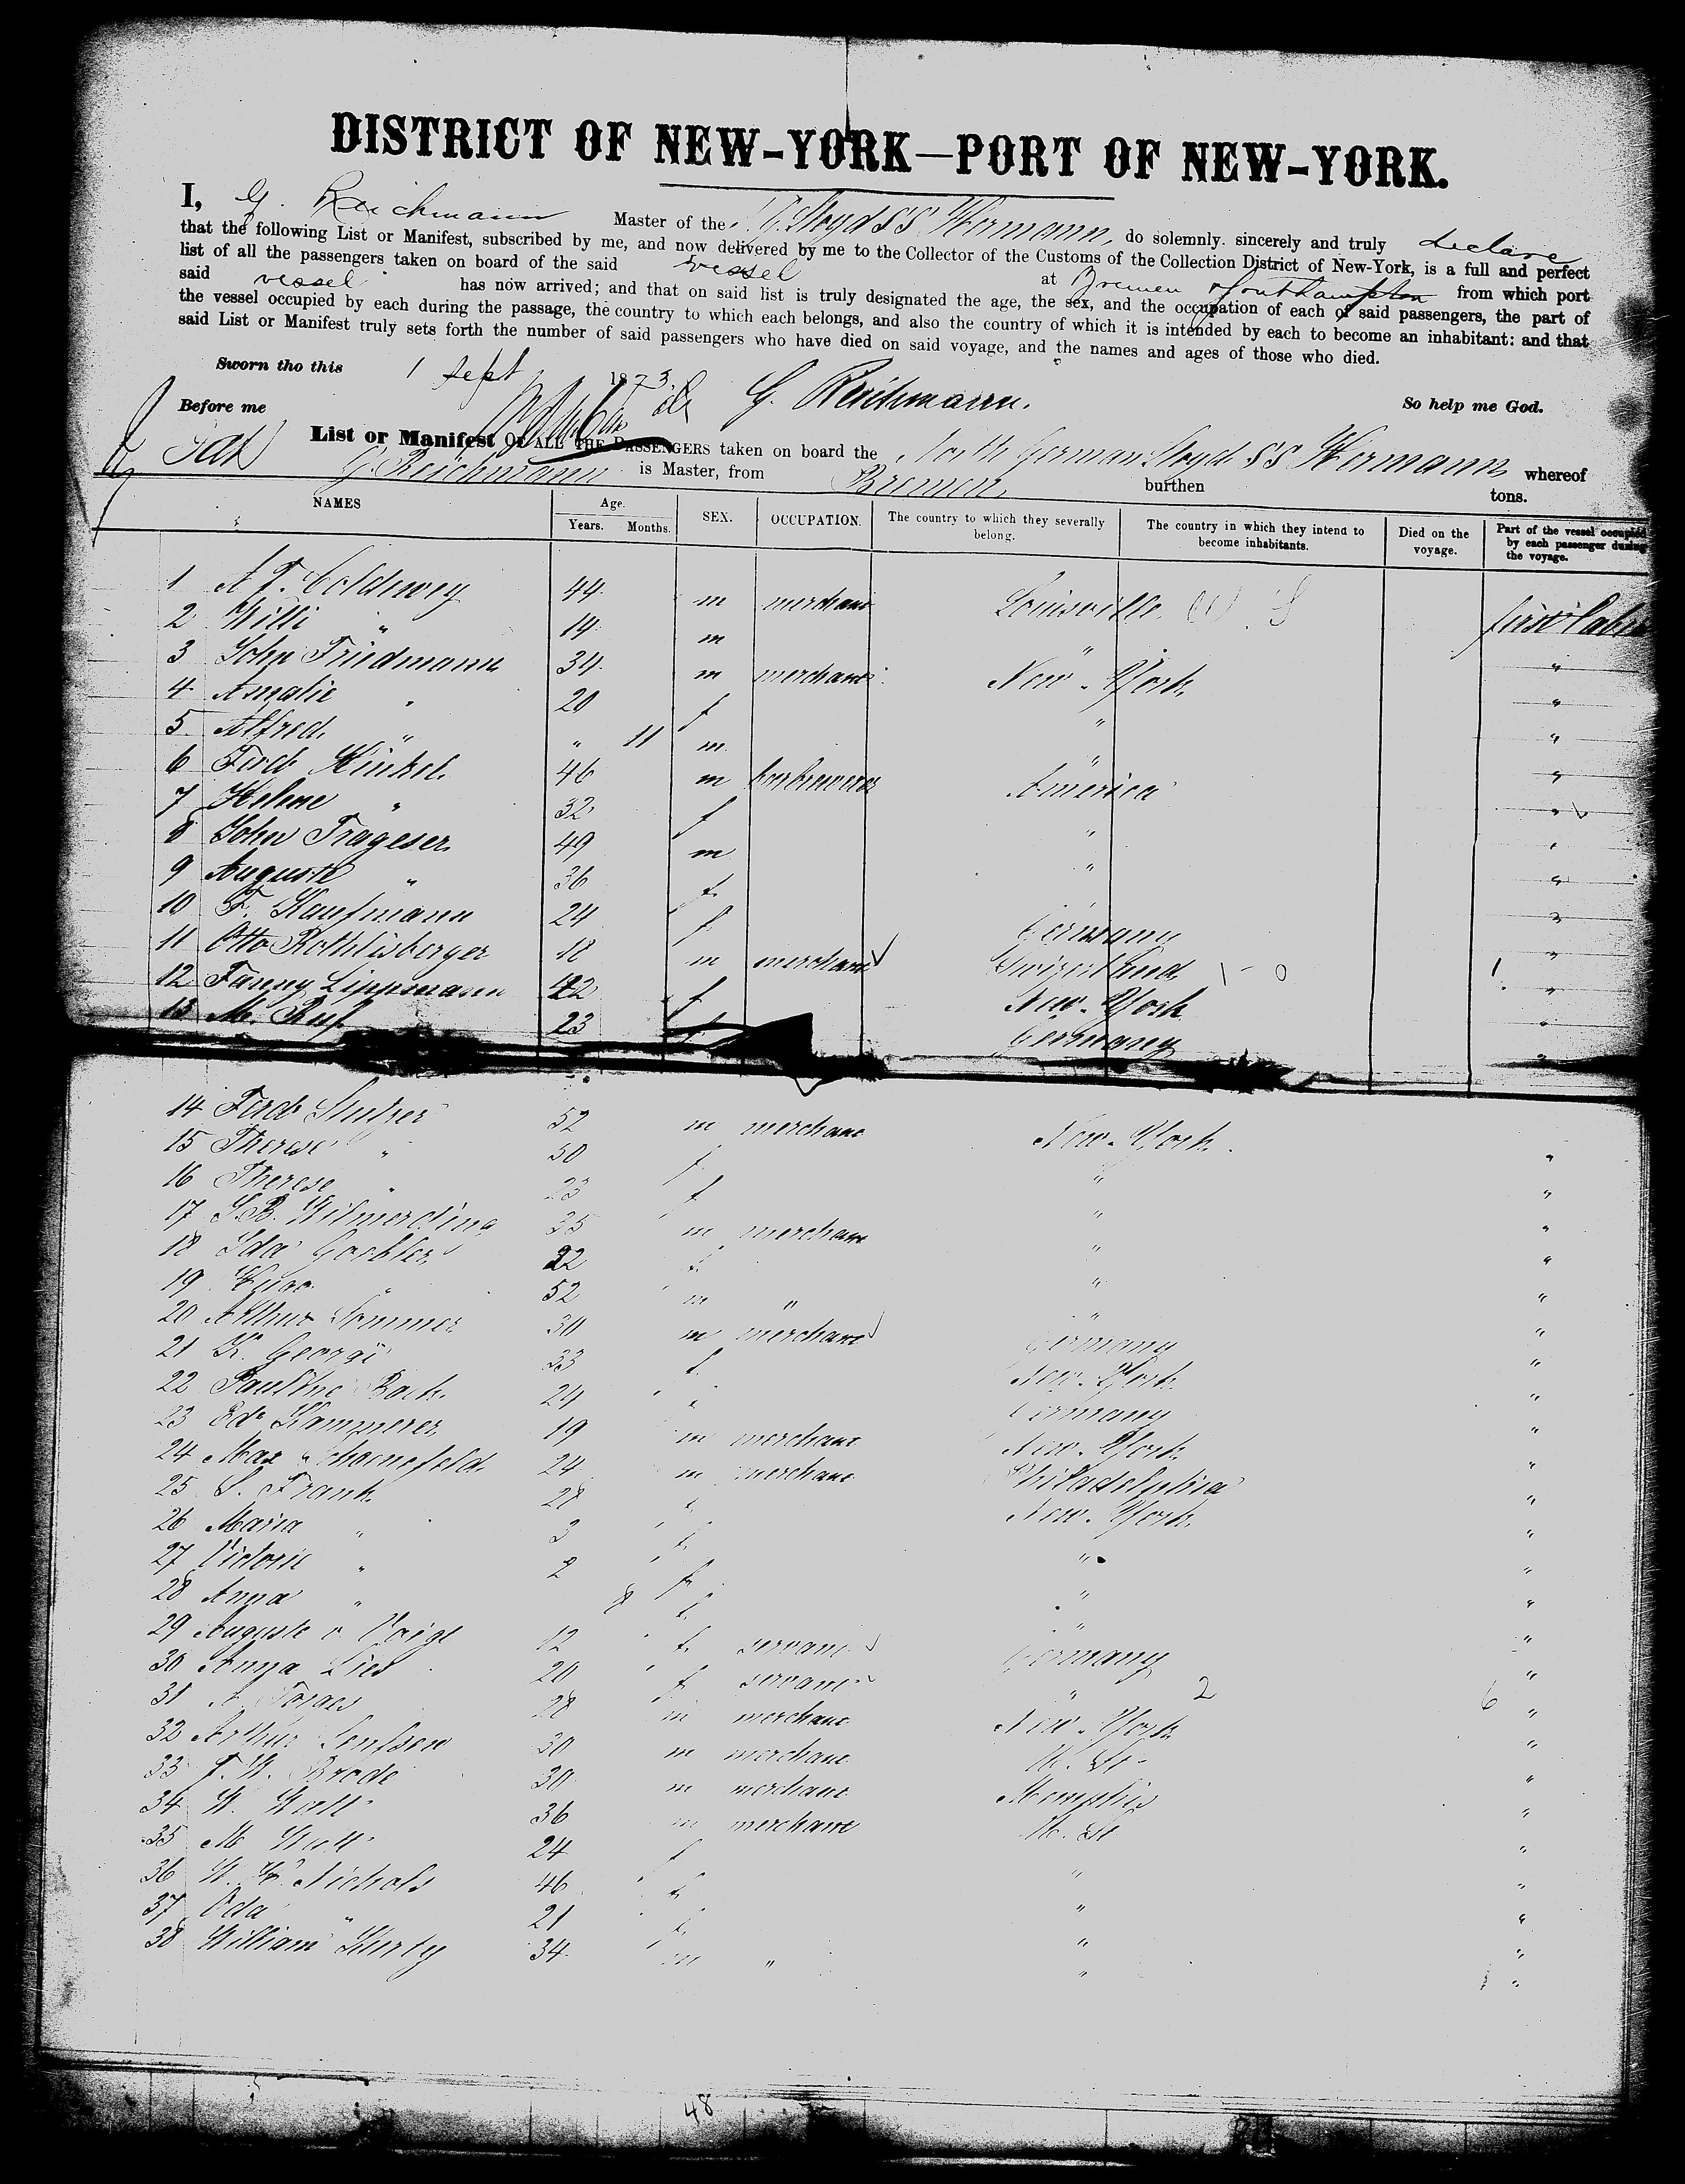 DISTRICT OF NEW-YORK—PORT OF NEW-YORK.
I, G. Reichmann Master of the Lloyd SS Hermann, do solemnly. sincerely and truly declare
that the following List or Manifest, subscribed by me, and now delivered by me to the Collector of the Customs of the Collection District of New-York, is a full and perfect
list of all the passengers taken on board of the said vessel at Bremen & Southampton from which port
said vessel has now arrived; and that on said list is truly designated the age, the sex, and the occupation of each of said passengers, the part of
the vessel occupied by each during the passage, the country to which each belongs, and also the country of which it is intended by each to become an inhabitant: and that
said List or Manifest truly sets forth the number of said passengers who have died on said voyage, and the names and ages of those who died.
Sworn tho this 1 Sept 1873. G. Reichmann. So help me God.
Before me
List or Manifest OF ALL THE PASSENGERS taken on board the North German Lloyd SS Hermann whereof
G. Reichmann is Master, from Bremen, burthen tons.
NAMES Age. Years. Months. SEX. OCCUPATION. The country to which they severally belong. The country in which they intend to become inhabitants. Died on the voyage. Part of the vessel occupied by each passenger during the voyage.
1 A. F. Coldewey 44 m merchant Louisville first Cabin
2 Willi " 14 m " "
3 John Friedmann 34 m merchant New-York "
4 Amalie " 20 f " "
5 Alfred " " 11 m " "
6 Ferd Kinkel 46 m America "
7 Helene " 32 f " "
8 John Trageser 49 m " "
9 Auguste " 36 f "
10 F. Kaufmann 24 f Germany "
11 Otto Rothlisberger 18 m merchant "
12 Fanny Lippmann f New-York "
13 M. Ruf 23 f Germany "
14 Ferd 52 m merchant New-York "
15 Therese " 50 f " "
16 Therese " 23 f " "
17 G.B. Wilmerding 35 m merchant " "
18 Ida f " "
19 " 52 m " " "
20 Arthur Sommer 30 m merchant Germany "
21 K. Georgi 33 f New-York "
22 Pauline 24 f Germany "
23 Ed. Kammerer 19 m merchant New-York "
24 Max Schoenefeld 24 m merchant Philadelphia "
25 S. Frank 28 f New-York "
26 Maria " 3 f " "
27 Victorie " 2 f " "
28 Anna " 8 f " "
29 Auguste v. 12 f servant Germany "
30 Anna 20 f servant " 2 6 "
31 A. 28 m merchant New-York "
32 Arthur 30 m merchant "
33 F. W. Brode 30 m merchant Memphis "
34 W. 36 m merchant "
35 M 24 f " "
36 W. Nichols 46 f " "
37 " 21 f " "
38 William 34 m " " "
48